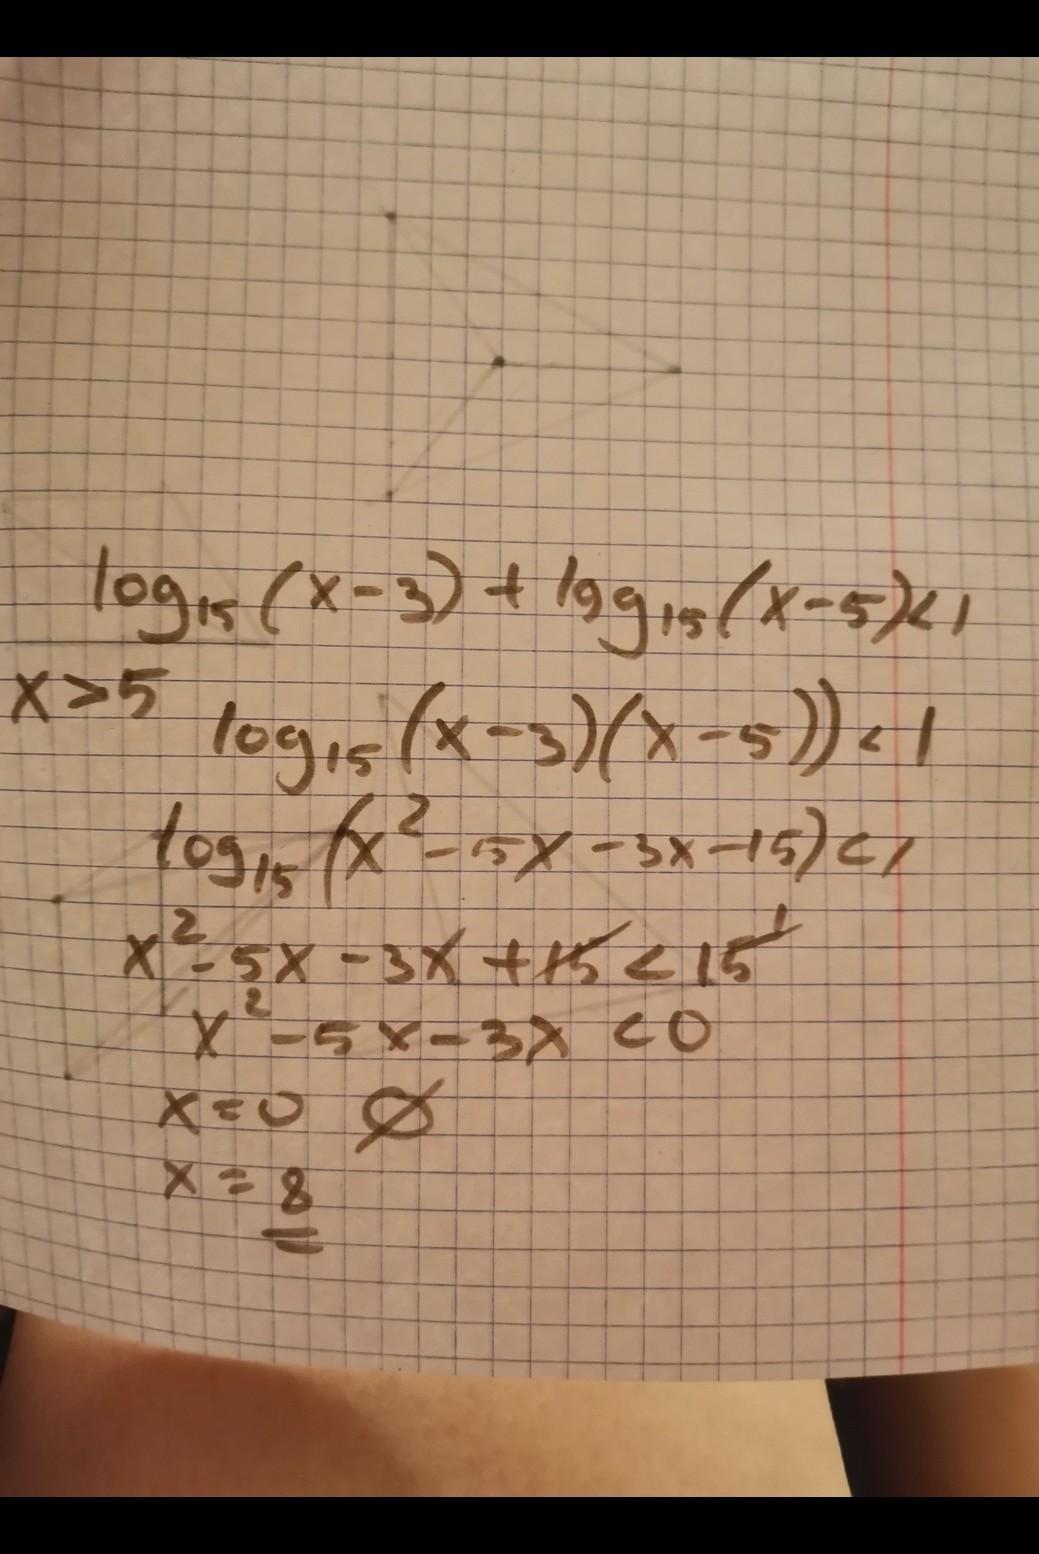 log₁₅(x-3) + log₁₅(x-5)<1
x>5
log₁₅(x-3)(x-5))<1
log₁₅(x²-5x-3x-15)<1
x²-5x-3x+15<15¹
x²-5x-3x<0
x=0 ∅
x=8